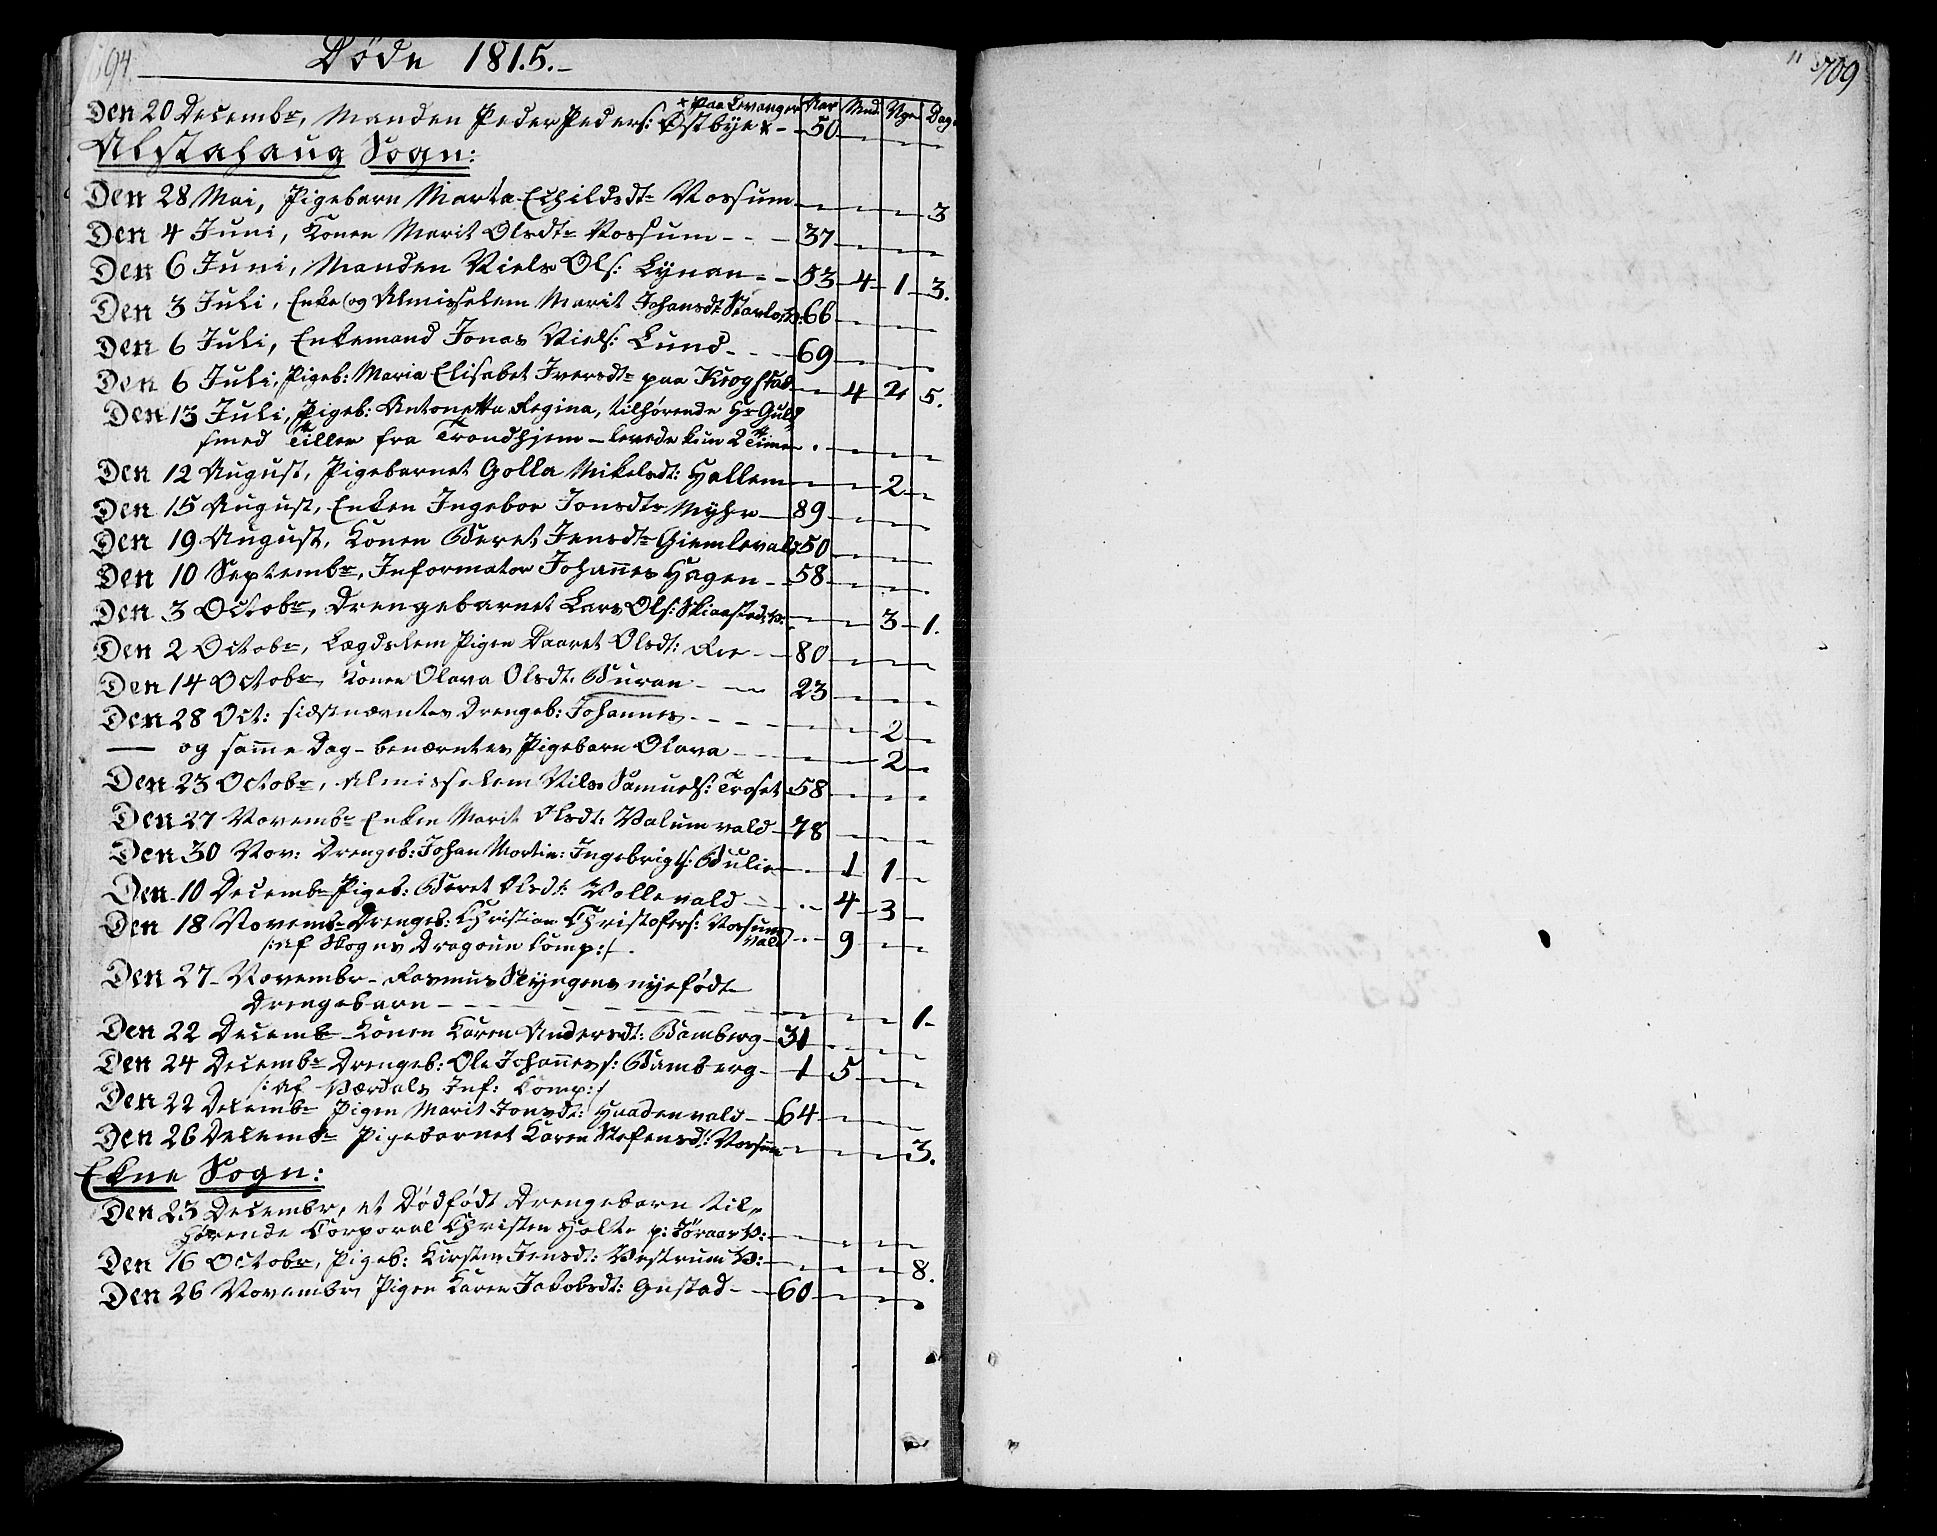 694.
Døde 1815.
Aar Mnd. Vgr Dage
Den 20 Decembr, Manden Peder Peders: Østbye x - 50
x paa Levanger
Alstahaug Sogn:
Den 28 Mai, Pigebarn Marta Eskildsdtr Vossum 3
Den 4 Juni, Konen Marit Olsdtr Vossum - - 37
Den 6 Juni, Manden Niels Ols: Lynan - 53 4 1 3.
Den 3 Juli, Enke og Almisselem Marit Johansdt: 66
Den 6 Juli, Enkemand Jonas Niels: Lund - - 69
Den 6 Juli, Pigeb: Maria Elisabet Iversdtr paa Krogstad 4 2 5.
Den 13 Juli, Pigeb: Antonetta Regina, tilhørende Hr Guld
smed Tiller fra Trondhjem - levede kun 2 Timer
Den 12 August, Pigebarnet Golla Mikelsdt: Hallem 2
Den 15 August, Enken Ingebor Jonsdtr Myhr 89
Den 19 August, Konen Beret Jensdtr Giemlevald 50
Den 10 Septembr, Informator Johannes Hagen - 58
Den 3 Octobr, Drengebarnet Lars Ols: Skiaastad 3 1.
Den 2 Octobr, Lægdslem Pigen Daaret Olsdt: Ree - 80
Den 14 Octobr, Konen Olava Olsdt: Buran - 23
Den 28 Oct: sidstnævntes Drengeb: Johannes - - 2
og samme Dag - benævntes Pigebarn Olava - 2
Den 23 Octobr, Almisselem Nils Samuels: Troset 58
Den 27 Novembr Enken Marit Olsdt: Valumvald 78
Den 30 Nov: Drengeb: Johan Martin: Ingebrigts: Bulie 1 1
Den 10 Decembr Pigeb: Beret Olsdt: Vollevald 4 3
Den 18 Novembr Drengeb: Christian Christofers: Vossum
vald 9
/: Af Skogns Dragoun Comp: /.
Den 27 Novembr - Rasmus Skyngens nyefødte
Drengebarn - - 1
Den 22 Decemb - Konen Karen Andersdt: Bamberg - 31
Den 24 Decembr Drengeb: Ole Johannes: Bamberg - 1 5
/: Af Værdals Inf: Comp: /
Den 22 Decembr Pigen Marit Jonsdt: Haadenvald - 64
Den 26 Decembr Pigebarnet Karen Stefensdt: Vossum 3.
Ekne Sogn:
Den 23 Decembr, et Dødfødt Drengebarn til„
hørende Corporal Christen Holte
Den 16 Octobr, Pigeb: Kirsten Jensdt: Vestrum V: 8.
Den 26 Novembr Pigen Karen Jakobsdt: Gustad - - 60
709